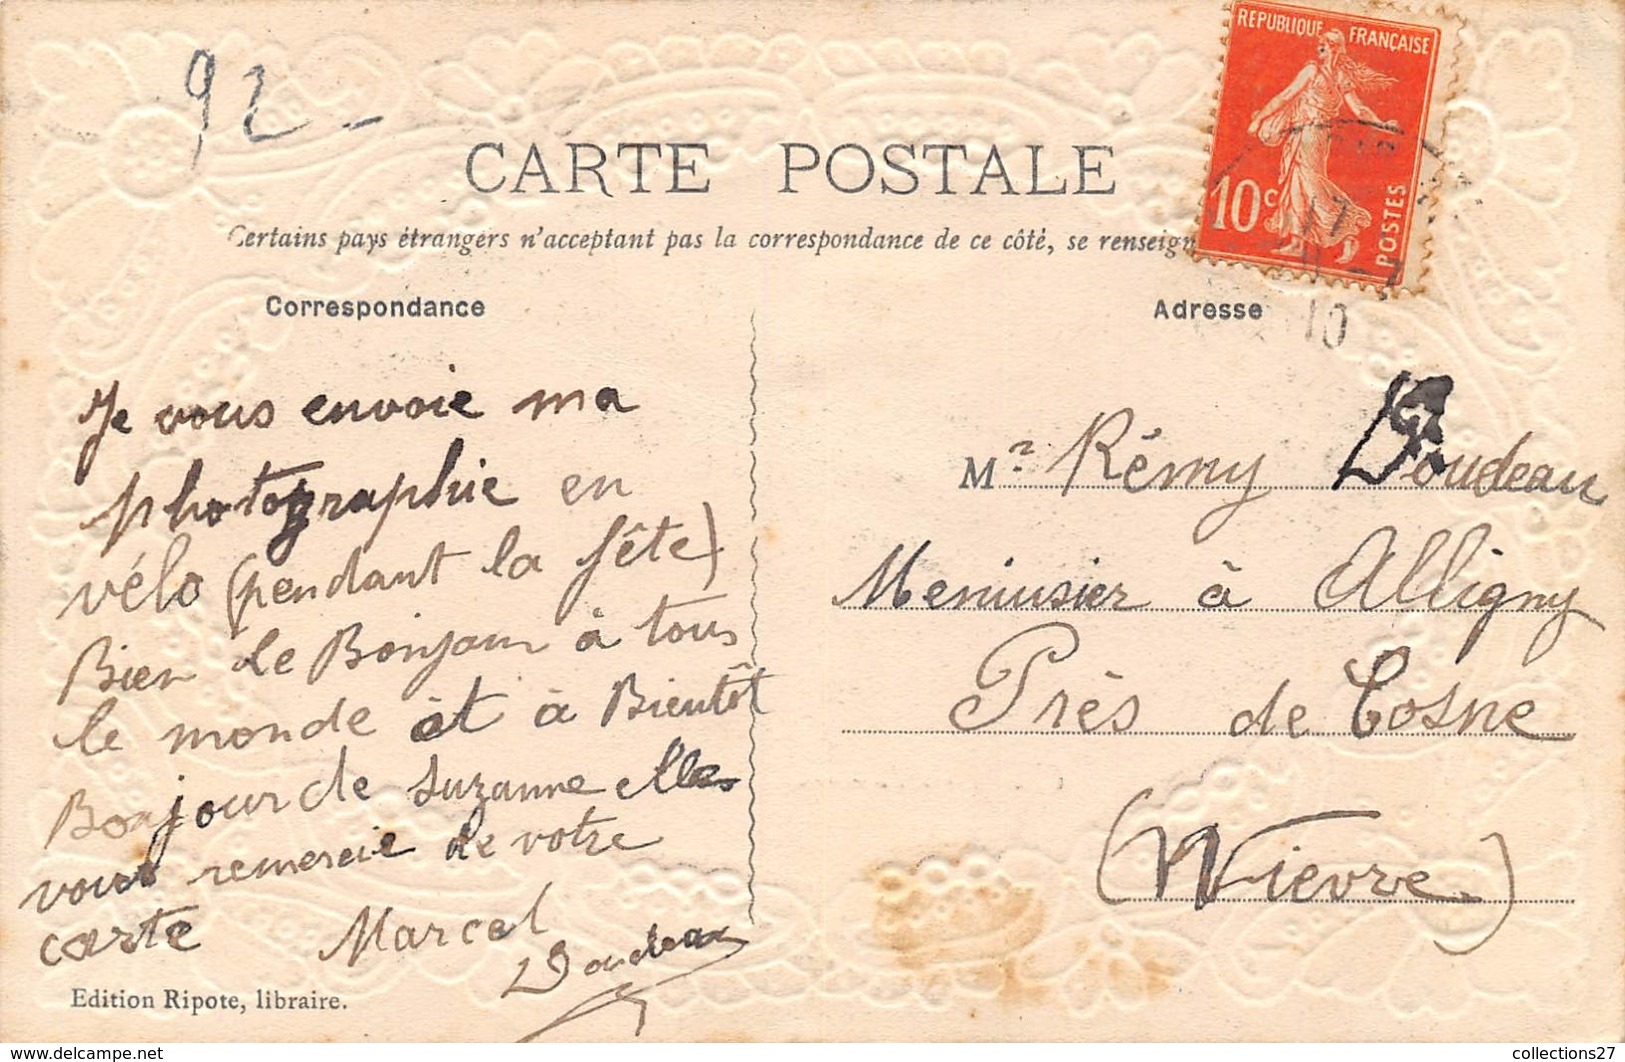 92 -
REPUBLIQUE FRANÇAISE
10 c
POSTES
17
10
CARTE POSTALE
Certains pays étrangers n'acceptant pas la correspondance de ce côté, se renseign
Correspondance
Je vous envoie ma
photographie en
vélo (pendant la fête)
Bien de Bonjour à tous
le monde et à Bientôt
Bonjour de Suzanne elle
vous remercie de votre
carte Marcel
Doudeau
Edition Ripote, libraire.
Adresse
Mr Rémy Doudeau
Meniusier à Alligny
Près de Cosne
(Nièvre)
www.delcampe.net
collections27